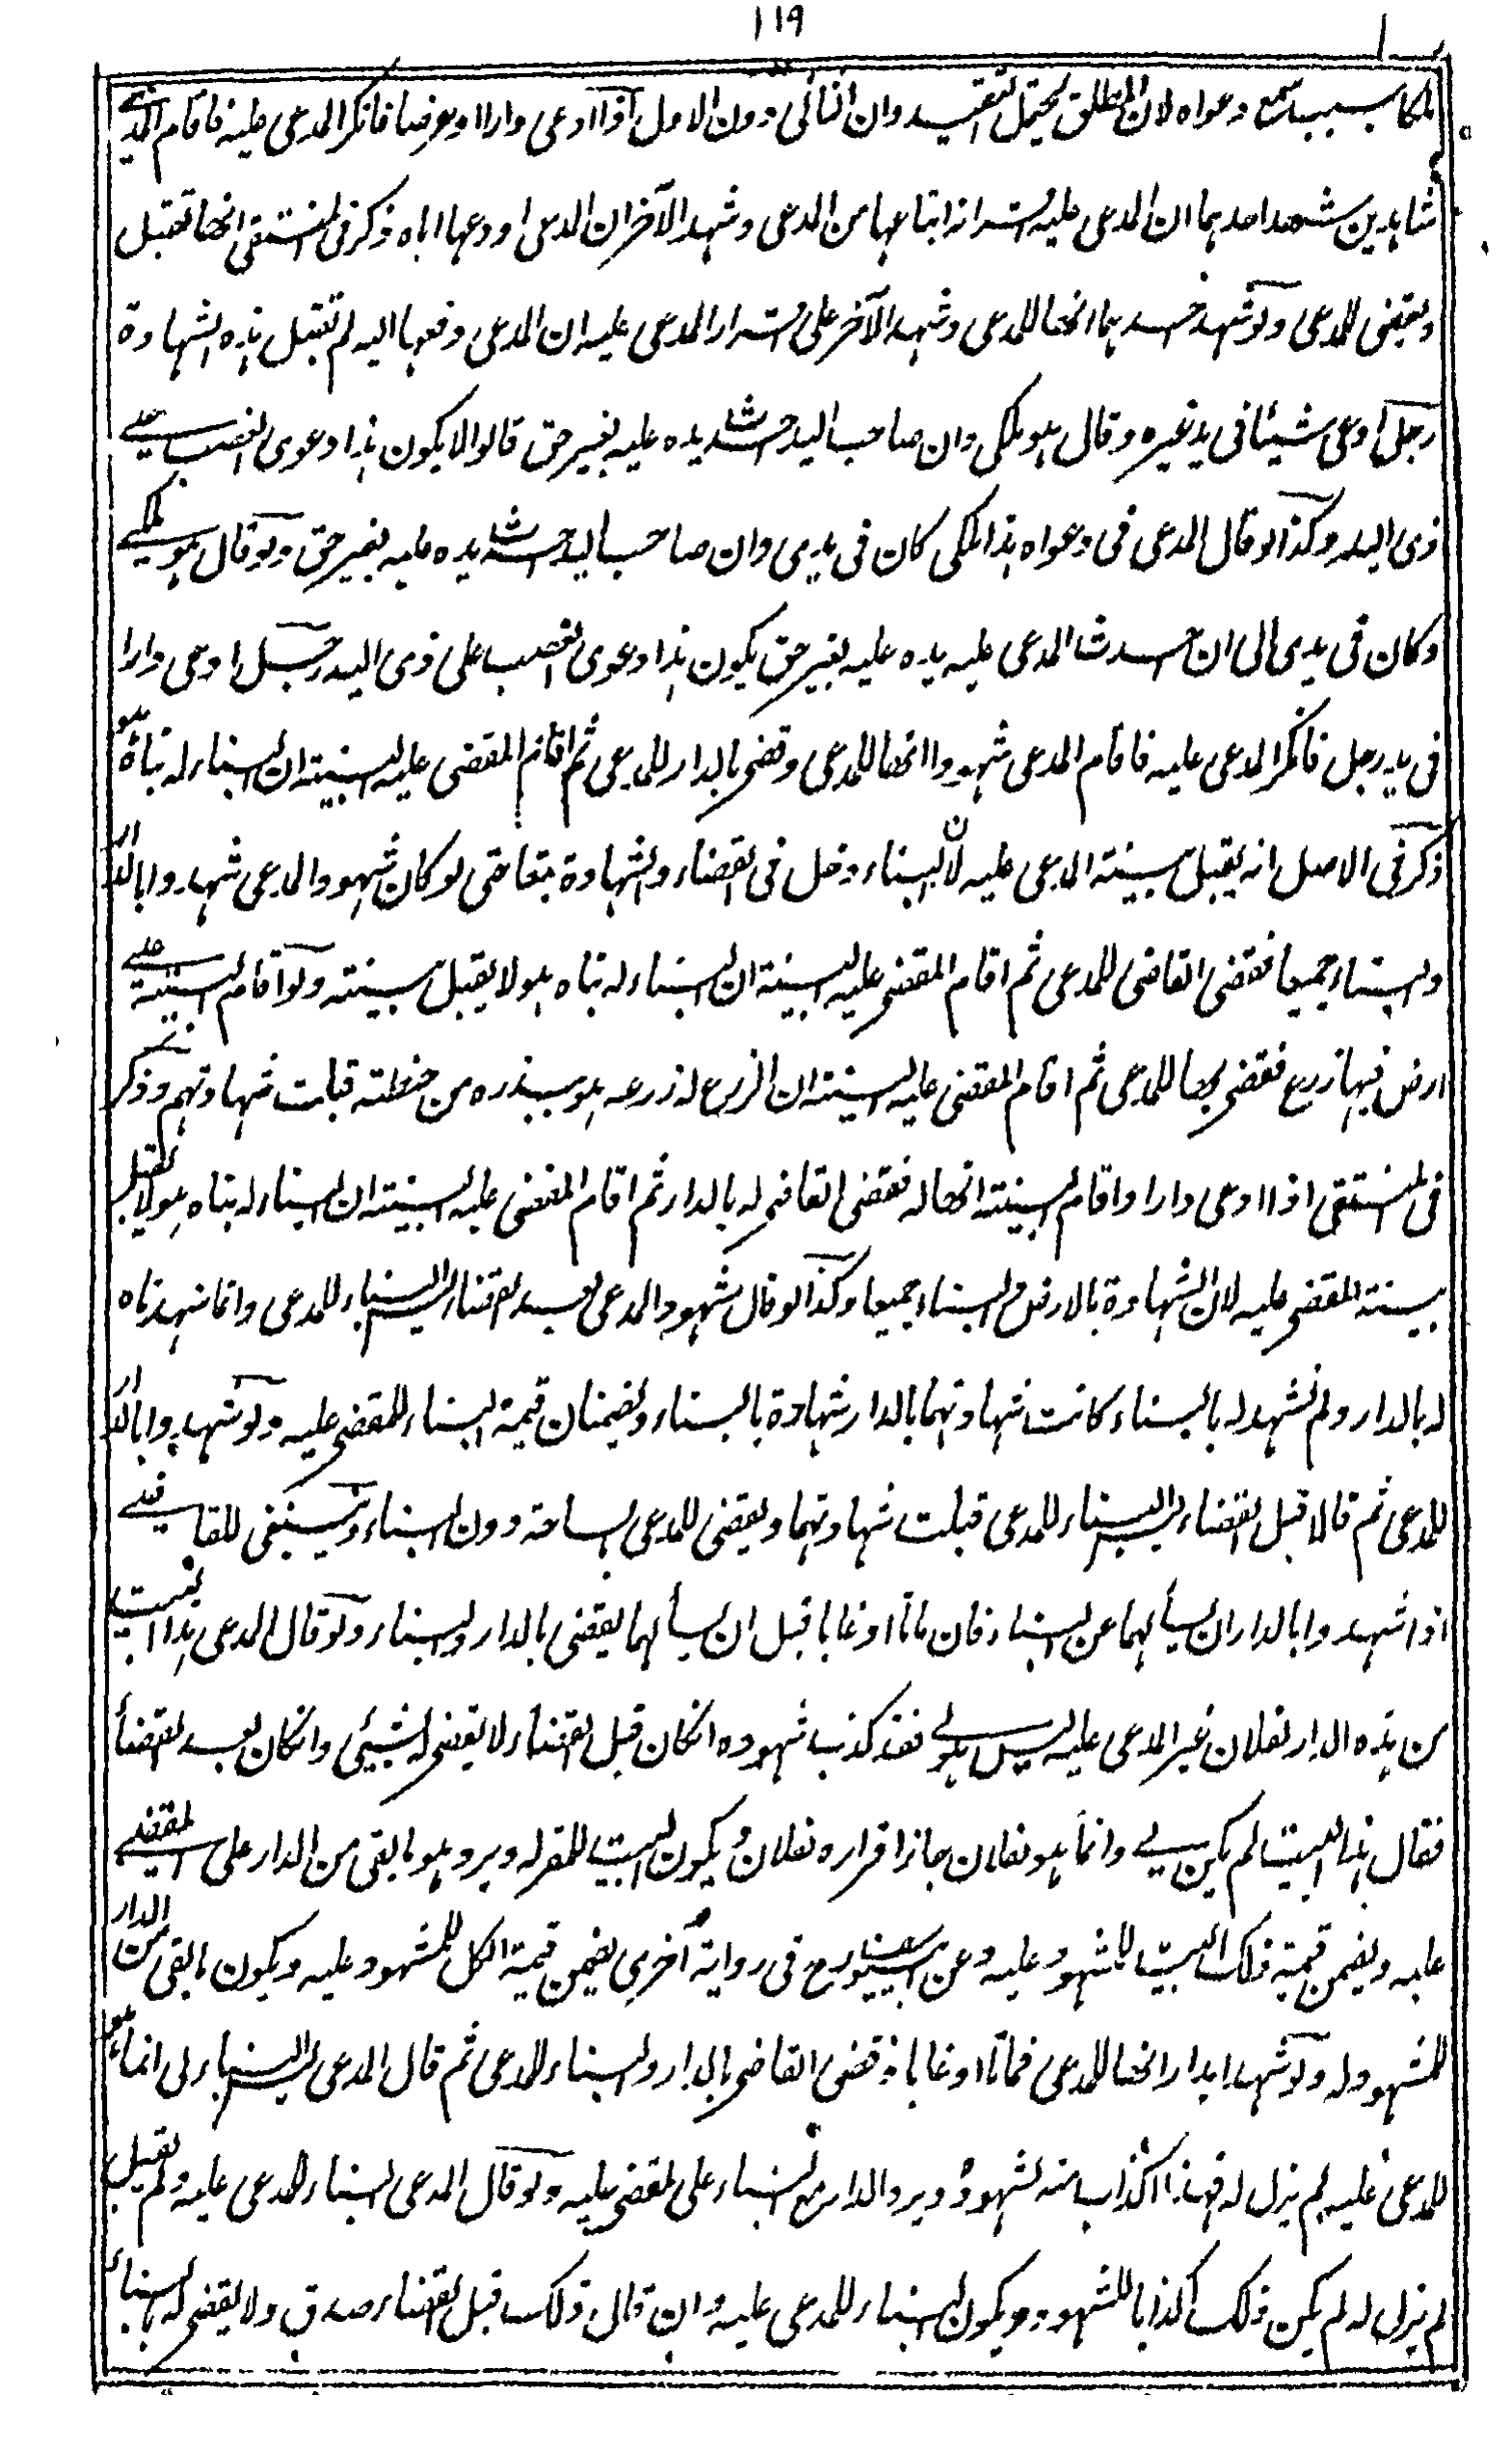 ١١٩
ملكا بسبب تسمع دعواه لان المطلق يحتمل التقييد وان الثانى دون الاول اذا ادعى دارا او عرضا فانكر المدعى عليه فاقام المدعى
شاهدين شهد احدهما ان المدعى عليه اقر انه ابتاعها من المدعى وشهد الآخر ان المدعى اودعها اياه ذكر فى المنتقى انها تقبل
ويقضى للمدعى ولو شهد احدهما انها للمدعى وشهد الآخر على اقرار المدعى عليه ان المدعى دفعها اليه لم تقبل هذه الشهادة
رجل ادعى شيئا فى يد غيره وقال هو ملكى وان صاحب اليد احدث يده عليه بغير حق قالوا لا يكون هذا دعوى الغصب على
ذى اليد وكذا لو قال المدعى فى دعواه هذا ملكى كان فى يدى وان صاحب اليد احدث يده عليه بغير حق ولو قال هو ملكى
وكان فى يدى الى ان احدث المدعى عليه يده عليه بغير حق يكون هذا دعوى الغصب على ذى اليد رجل ادعى دارا
فى يد رجل فانكر المدعى عليه فاقام المدعى شهودا انها للمدعى وقضى بالدار للمدعى ثم اقام المقضى عليه البينة ان البناء له بناه هو
ذكر فى الاصل انه يقبل بينة المدعى عليه لان البناء دخل فى القضاء والشهادة تبعا حتى لو كان شهود المدعى شهدوا بالدار
والبناء جميعا فقضى القاضى للمدعى ثم اقام المقضى عليه البينة ان البناء له بناه هو لا يقبل بينته ولو اقام البينة على
ارض فيها زرع فقضى بها للمدعى ثم اقام المقضى عليه البينة ان الزرع له زرعه هو ببذره من حنطته قبلت شهادتهم وذكر
فى المنتقى اذا ادعى دارا واقام البينة انها له فقضى القاضى له بالدار ثم اقام المقضى عليه البينة ان البناء له بناه هو لا يقبل
بينة المقضى عليه لان الشهادة بالارض والبناء جميعا وكذا لو قال شهود المدعى بعد القضاء ليس البناء للمدعى وانما شهدناه
له بالدار ولم نشهد له بالبناء كانت شهادتهما بالدار شهادة بالبناء ويضمنان قيمة البناء للمقضى عليه ولو شهدوا بالدار
للمدعى ثم قالا قبل القضاء ليس البناء للمدعى قبلت شهادتهما ويقضى للمدعى بالساحة دون البناء وينبغى للقاضى
اذا شهدوا بالدار ان يسألهما عن البناء فان ماتا او غابا قبل ان يسألهما يقضى بالدار والبناء ولو قال المدعى هذا البيت
من هذه الدار لفلان غير المدعى عليه ليس هو لى فقد كذب شهوده ان كان قبل القضاء لا يقضى له بشيئ وان كان بعد القضاء
فقال هذا البيت لم يكن لى وانما هو لفلان جاز اقراره لفلان ويكون البيت للمقر له ويرد هو ما بقى من الدار على المقضى
عليه ويضمن قيمة ذلك البيت للمشهود عليه وعن ابى يوسف رح فى رواية اخرى يضمن قيمة الكل للمشهود عليه ويكون ما بقى من الدار
للمشهود له ولو شهدا بدار انها للمدعى فماتا او غابا فقضى القاضى بالدار والبناء للمدعى ثم قال المدعى ليس البناء لى انما هو
للمدعى عليه لم يزل له فهذا اكذاب منه لشهوده ويرد الدار مع البناء على المقضى عليه ولو قال المدعى البناء للمدعى عليه ولم يقبل
لم يزل له لم يكن ذلك اكذابا للشهود ويكون البناء للمدعى عليه وان قال ذلك قبل القضاء صدق ولا يقضى له بالبناء